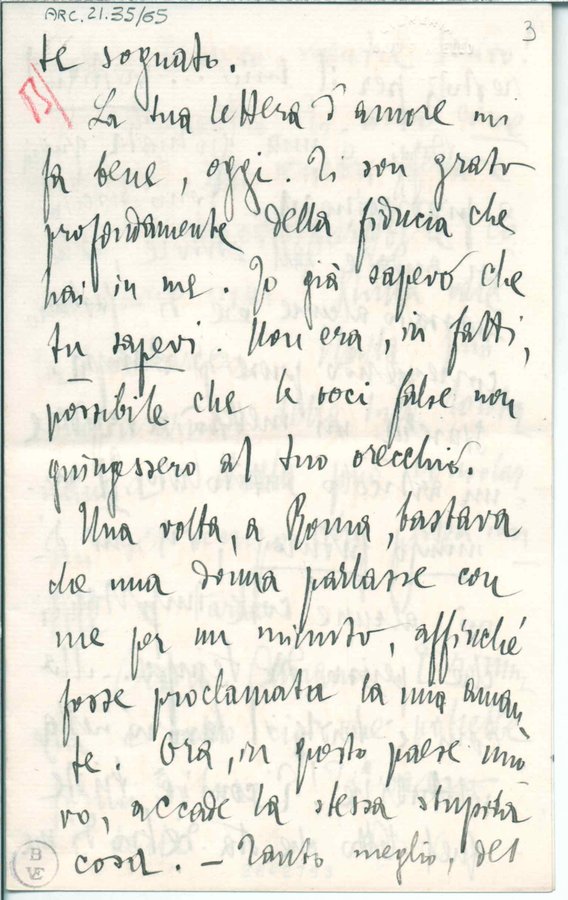 ARC.21.35/65
3
te sognato.
La tua lettera d'amore mi
fa bene, oggi. Ti son grato
profondamente della fiducia che
hai in me. Io già sapevo che
tu sapevi. Non era, in fatti,
possibile che le voci false non
giungessero al tuo orecchio.
Una volta, a Roma, bastava
che una donna parlasse con
me per un minuto, affinché
fosse proclamata la mia aman-
te. Ora, in questo paese nuo
vo, accade la stessa stupida
cosa. – Tanto meglio, del
B
VE